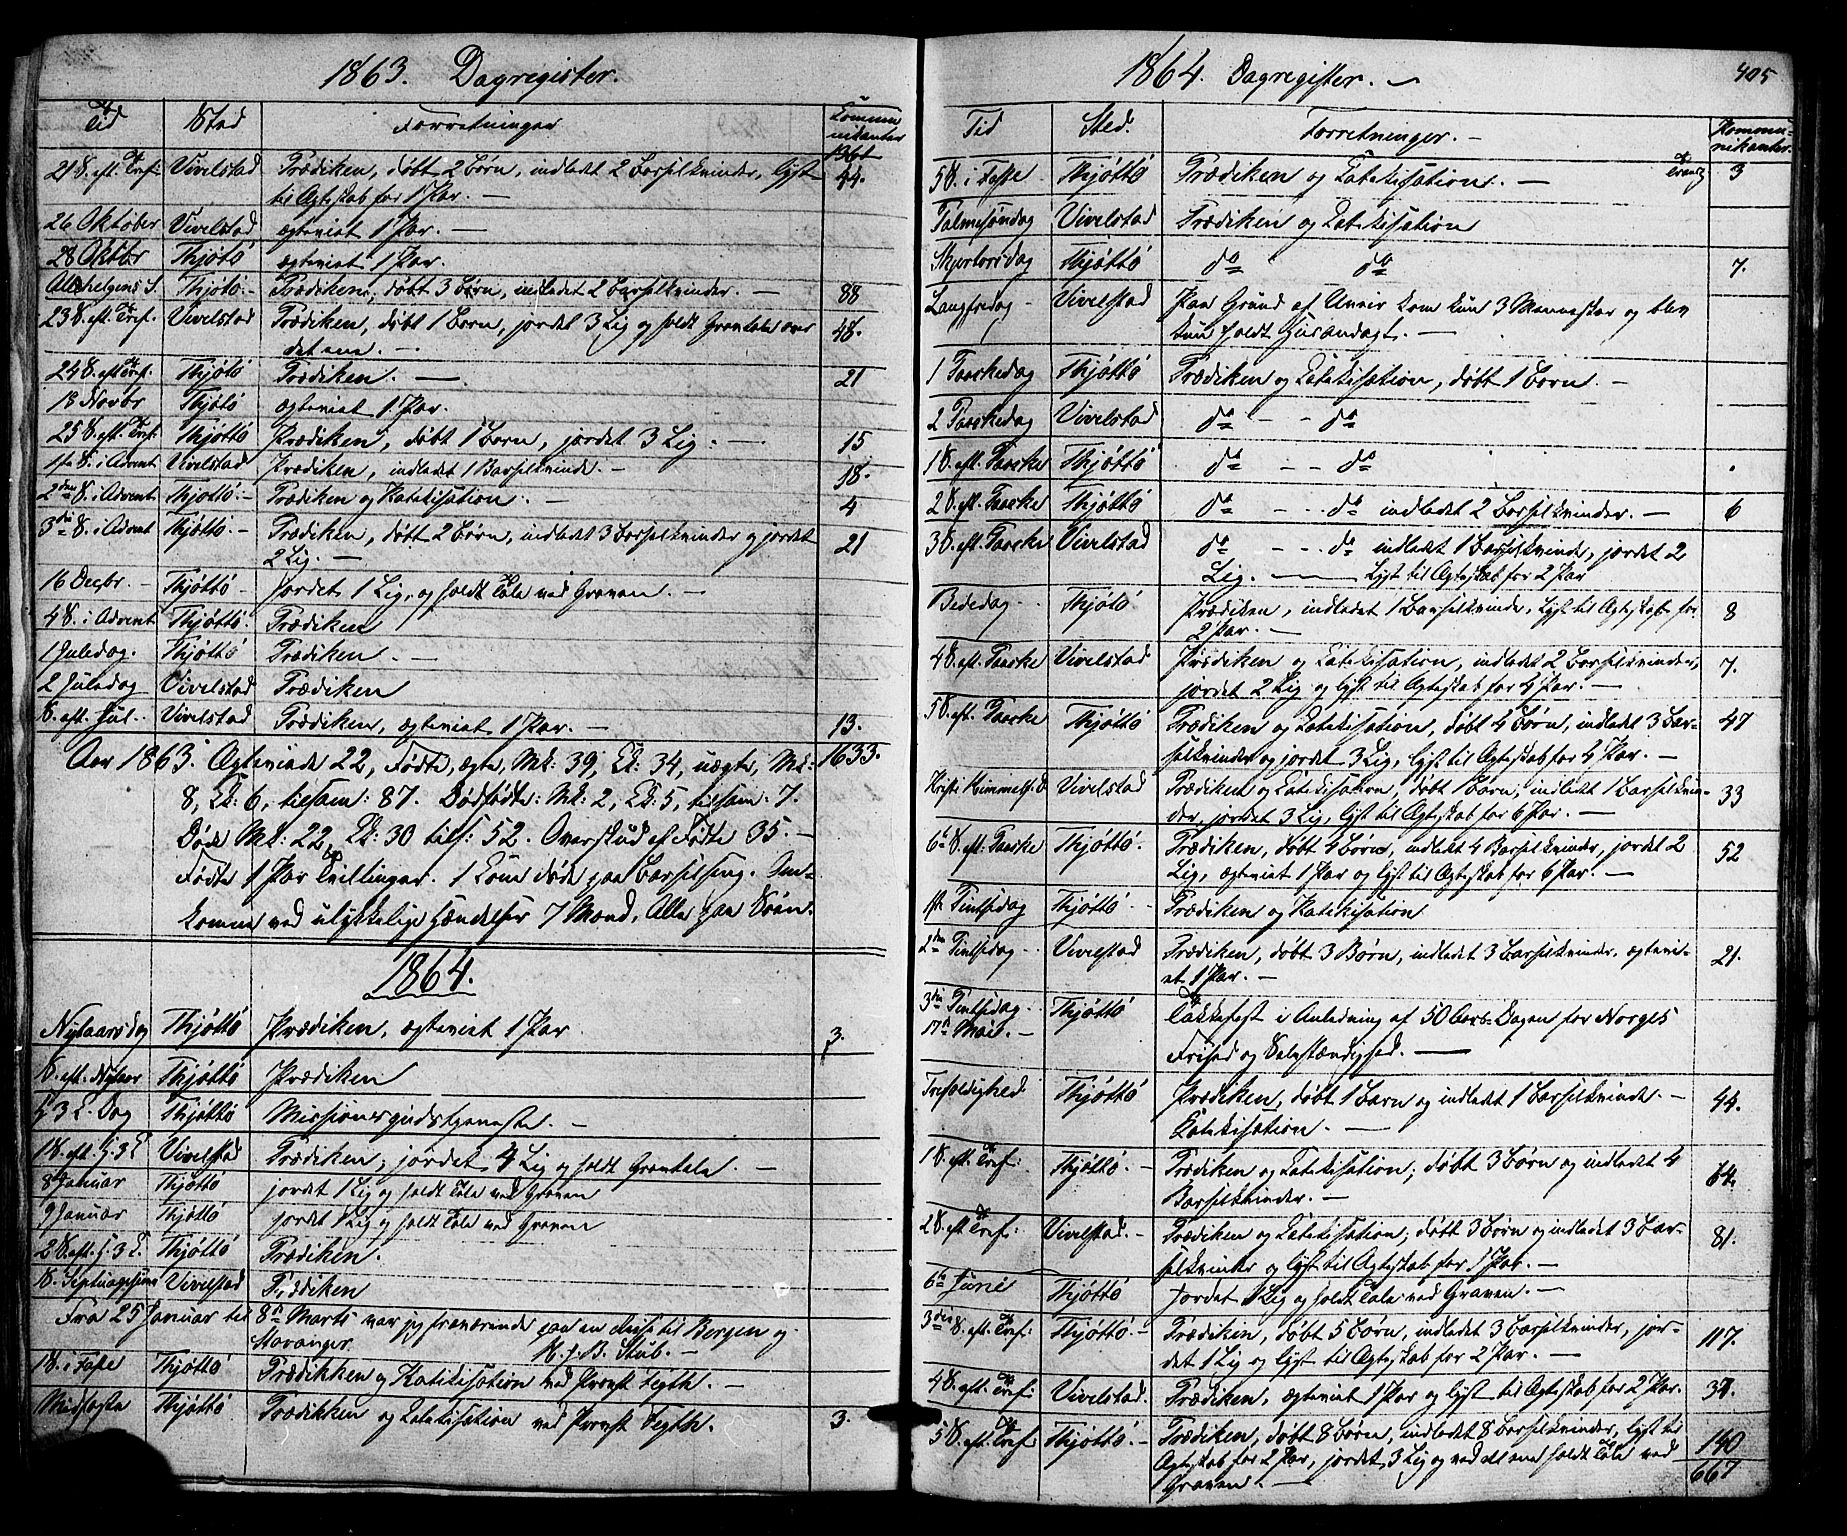 1863. Dagregister.
Tid Sted Forretninger Kommunikanter
1361
21 S. eft. Tref: Vivelstad Prædiken, döbt 2 Börn, indledet 2 Barselkvinder, lyst 44.
til Ægteskab for 1 Par. —
26 Oktober Vivelstad ægteviet 1 Par. —
28 Oktbr Thjöttö ægteviet 1 Par.
Allehelgens S. Thjöttö. – Prædiken, döbt 3 Börn, indledet 2 Barselkvinder. — 88
23 S. eft. Tref. Vivelstad Prædiken, döbt 1 Barn, jordet 3 Lig og holdt Gravtale over 48.
det ene. —
24 S. eft. Tref. Thjöttö Prædiken. — 21
13 Novbr Thjöttö ægteviet 1 Par.
25 S. eft. Tref: Thjöttö Prædiken, döbt 1 Barn, jordet 3 Lig. — 15
1ste S. i Advent Vivelstad Prædiken, indledet 1 Barselkvinde. – 18.
2den S. i Advent Thjöttö. – Prædiken og Katekisation. — 4
3die S. i Advent Thjöttö. – Prædiken, döbt 2 Börn, indledet 3 Barselkvinder og jordet 21
2 Lig. —
16 Decbr. – Thjöttö – Jordet 1 Lig, og holdt Tale ved Graven. —
4 S. i Advent Thjöttö. Prædiken
1 Juledag. Thjöttö Prædiken. —
2 Juledag Vivelstad Prædiken
S. eft. Jul.. Vivelstad Prædiken, ægteviet 1 Par. — 13.
Aar 1863. Ægteviede 22, Fødte, ægte, Mk: 39, Qk: 34, uægte, Mk: 1633.
8, Qk: 6, tilsam: 87. Dødfødte: Mk: 2, Qk: 5, tilsam: 7.
Døde Mk: 22, Qk: 30 tils: 52. Overskud af Fødte 35. –
Fødte 1 Par Tvillinger. 1 Kone døde paa Barselseng. Om-
komne ved ulykkelige Hændelser 7 Mand, Alle paa Søen.
1864.
Nytaarsdag Thjöttö Prædiken, ægteviet 1 Par 3.
S. eft. Nytaar Thjöttö Prædiken
H 3 K. Dag Thjöttö Missionsgudstjeneste. —
1 S. eft. H. 3 K Vivelstad Prædiken, jordet 4 Lig og holdt Gravtale. —
8 Januar Thjöttö jordet 1 Lig og holdt Tale ved Graven
9 Januar Thjöttö jordet 1 Lig og holdt Tale ved Graven
2 S. eft. H. 3 K. Thjöttö Prædiken.
S. Septuagesima Vivelstad Prædiken
Fra 25 Januar til 8de Marts var jeg fraværende paa en Reise til Bergen og
Stavanger. Stub. —
1 S. i Faste Thjöttö Prædikken og Katekisation ved Provst Tegth. —
Midfaste Thjöttö Prædikken og Katekisation ved Provst Tegth. — 3.
1864. Dagregister. — 405
Tid Sted. Forretninger. — Kommunikanter.
5 S. i Faste Thjöttö Prædiken og Katekisation. — 3
Palmesöndag Vivelstad Prædiken og Katekisation
Skjertorsdag Thjöttö do do 7.
Langfredag – Vivelstad Paa Grund af Uveir kom kun 3 Mennesker og blev
kun holdt Husandagt. —
1 Paaskedag Thjöttö Prædiken og Katekisation, döbt 1 Barn. —
2 Paaskedag Vivelstad do – – do
1 S. eft. Paaske Thjöttö do – – do .
2 S. eft. Paaske Thjöttö do – – do indledet 2 Barselkvinder. — 6
3 S. eft. Paaske Vivelstad do – – do indledet 1 Barselkvinde, jordet 2
Lig. — Lyst til Ægteskab for 2 Par
Bededag – Thjöttö Prædiken, indledet 1 Barselkvinde, lyst til Ægteskab for 8
2 Par. —
4 S. eft. Paaske Vivelstad Prædiken og Katekisation, indledet 2 Barselkvinder, 7.
jordet 2 Lig og lyst til Ægteskab for 4 Par. —
5 S. eft. Paaske Thjöttö Prædiken og Katekisation, döbt 4 Börn, indledet 3 Bar- 47
selkvinder og jordet 3 Lig, lyst til Ægteskab for 4 Par. —
Kristi Himmelf. D Vivelstad Prædiken og Katekisation, döbt 1 Barn, indledet 1 Barselkvin- 33
der, jordet 3 Lig, lyst til Ægteskab for 6 Par. —
6te S. eft. Paaske Thjöttö. Prædiken, döbt 4 Börn, indledet 4 Barselkvinder, jordet 2 52
Lig, ægteviet 1 Par og lyst til Ægteskab for 6 Par. —
1ste Pintsedag Thjöttö. – Prædiken og Katekisation
2den Pintsedag Vivelstad Prædiken, döbt 3 Börn, indledet 3 Barselkvinder, ægtevi- 21.
et 1 Par. —
3die Pintsedag. Thjöttö Takkefest i Anledning af 50 Aars-Dagen for Norges
17de Mai. – Frihed og Selvstændighed. —
Trefoldighed. Thjöttö Prædiken, döbt 1 Barn og indledet 1 Barselkvinde. — 44.
Katekisation. —
1 S. eft. Tref: Thjöttö. – Prædiken og Katekisation, döbt 3 Börn og indledet 4 64.
Barselkvinder. —
2 S. eft Tref: Vivelstad. – Prædiken og Katekisation, döbt 3 Börn og indledet 3 Bar- 81.
selkvinder og lyst til Ægteskab for 1 Par. —
6te Juni Thjöttö Jordet 1 Lig og holdt Tale ved Graven. —
3die S. eft. Tref: Thjöttö. – Prædiken, döbt 5 Börn, indledet 3 Barselkvinder, jor- 117.
det 1 Lig og lyst til Ægteskab for 2 Par. —
4 S. eft. Tref: Vivelstad. Prædiken, ægteviet 1 Par og lyst til Ægteskab for 2 Par. 37.
5 S. eft. Tref Thjöttö. – Prædiken, döbt 8 Börn, indledet 8 Barselkvinder, lyst til 140
Ægteskab for 2 Par, jordet 3 Lig og ved det ene holdt Tale ved
Graven. — 667